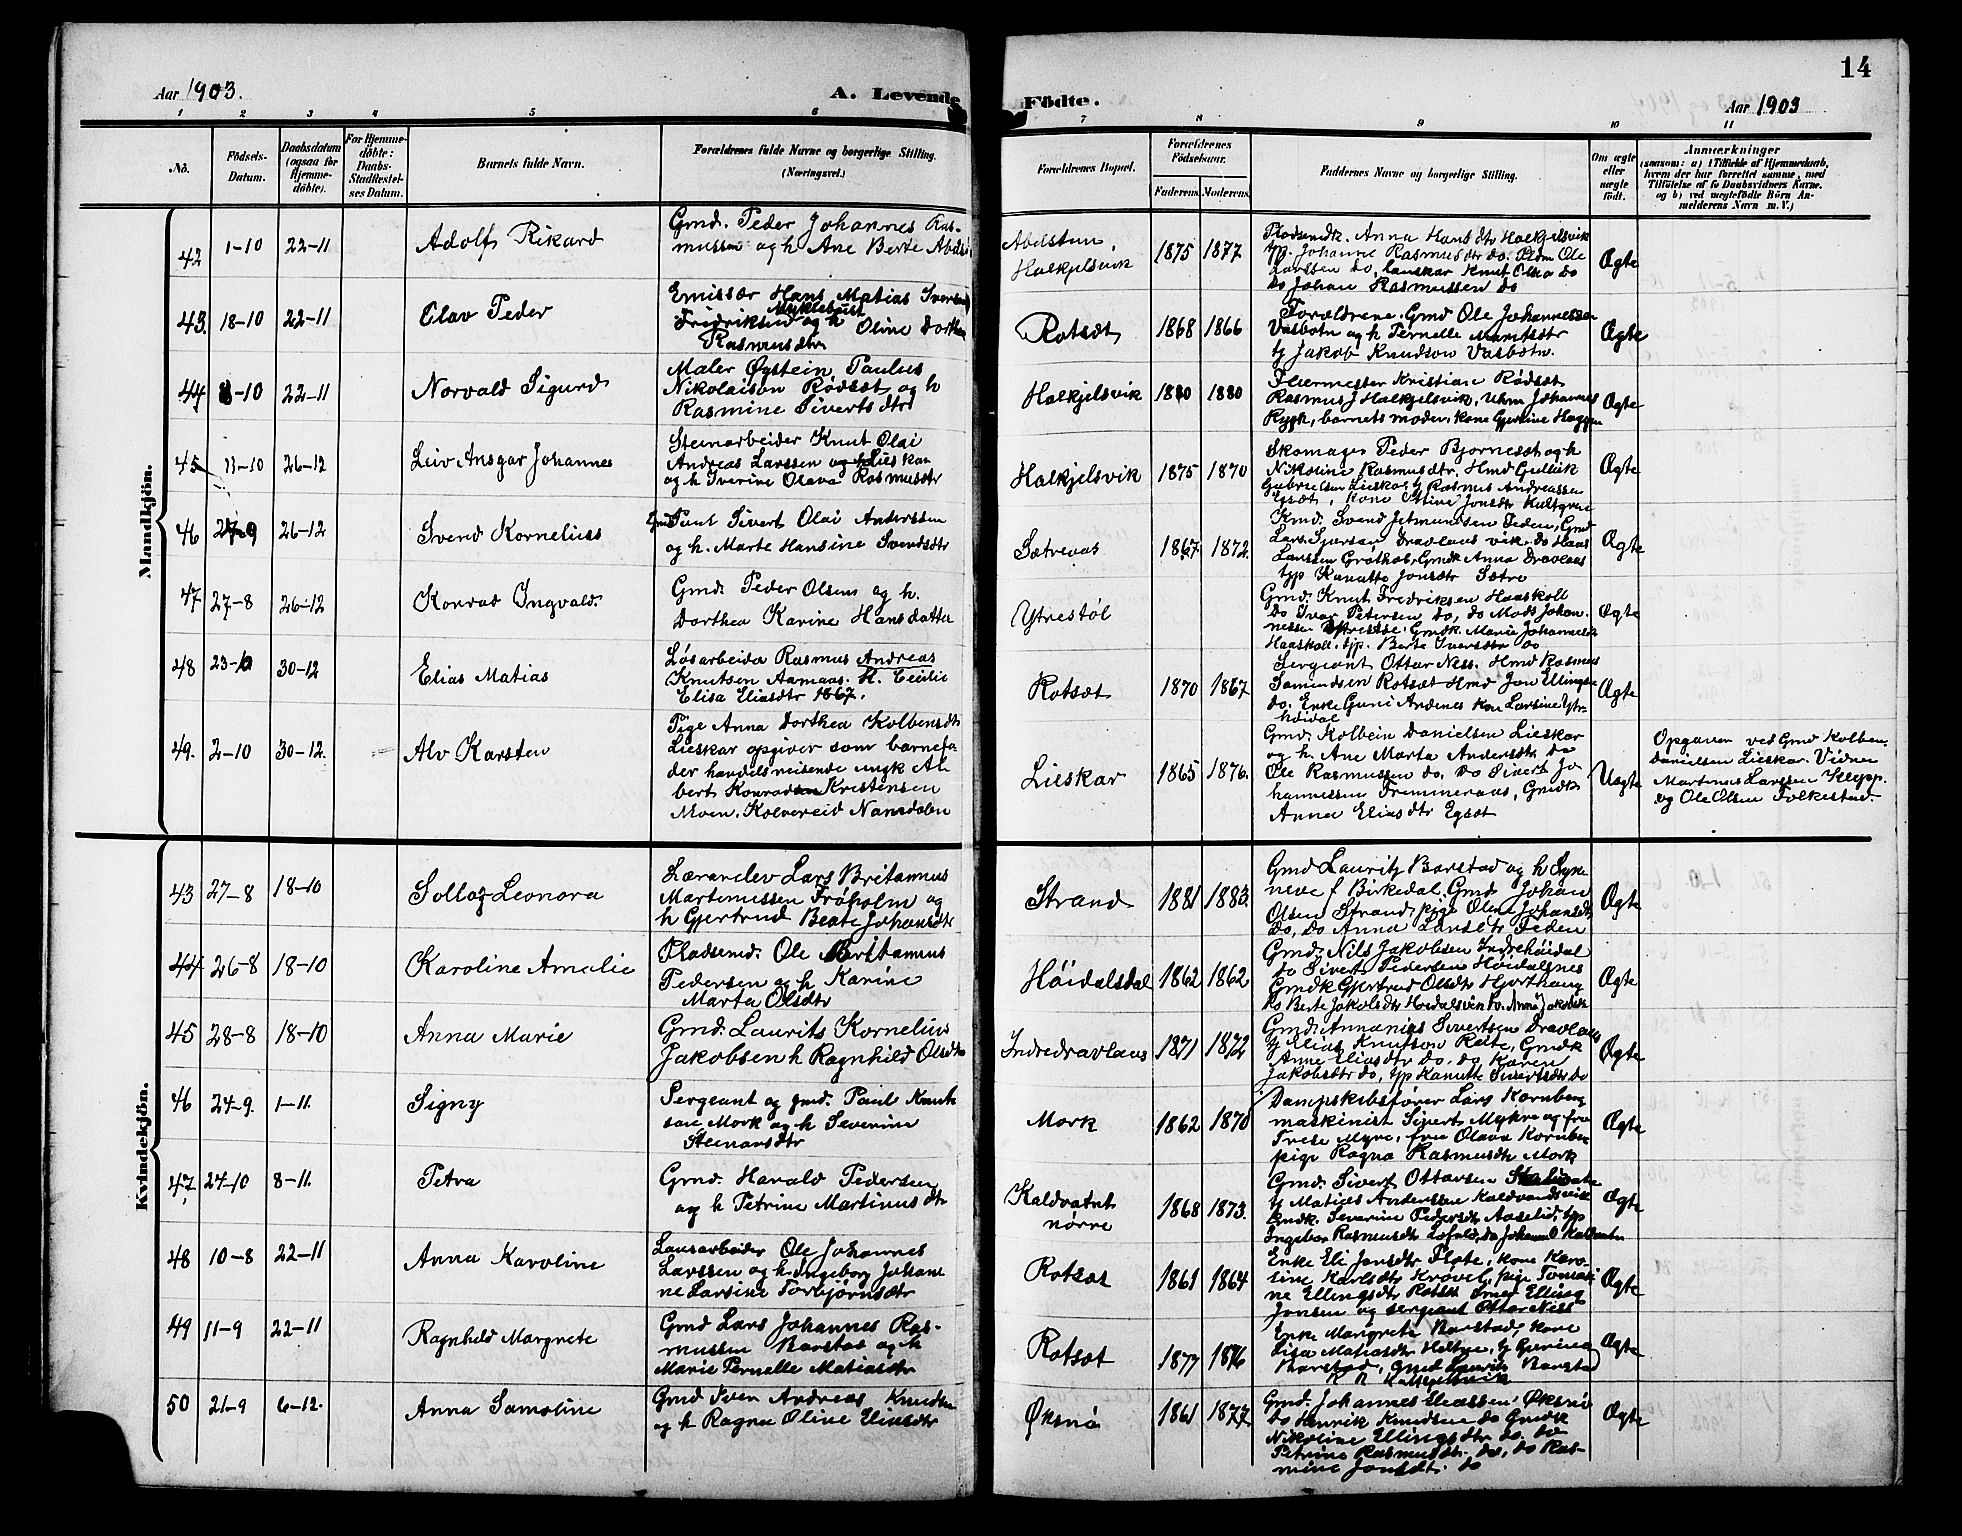 Aar 1903. A. Levende
Födte. Aar 1903
14
1 2 3 4 5 6 7 8 9 10 11
No. Födsels-Datum. Daabsdatum (ogsaa for Hjemme-döbte). For Hjemme-döbte: Daabs-Stadfæstel-ses Datum. Barnets fulde Navn. Forældrenes fulde Navne og borgerlige Stilling. (Næringsvei.)
Forældrenes Bopæl. Forældrenes Födselsaar. Faderens. Moderens. Faddernes Navne og borgerlige Stilling. Om ægte eller uægte födt. Anmærkninger
(saasom: a) i Tilfælde af Hjemmedaab, hvem der har forrettet samme, med Tilföielse af to Daabsvidners Navne. og b) ved uægtefödte Börn An-melderens Navn m. V.)
Mandkjön.
42 1-10 22-11 Adolf Rikard
Gmd. Peder Johannes Ras-
mussen og h Ane Berte
Halkjelsvik 1875 1877
Pladsemdk. Anna Hansdtr Halkjelsvik
tjp. Johanne Rasmusdtr do. Ole
Larssen do, Knut Olsen do
do Johan Rasmussen do
Ægte
43. 18-10 22-11 Olav Peder
Emissær Hans Matias Iversen
Myklebust
Fridriksen og h Oline Dorthea
Rasmusdtr
Rotsæt 1868 1866
Forældrene. Gmd Ole Johannessen
Vasbotn og h Pernelle
tj Jakob Knudson Vasbotn.
Ægte
44 8-10 22-11 Norvald Sigurd
Maler Øystein Paulus
Nikolaison Rødsæt og h
Rasmine Sivertsdtr
Halkjelsvik 1880 1880
Kristian Rødsæt
Rasmus J Halkjelsvik, Johannes
barnets moder, kone Gjertine
Ægte
45 11-10 26-12 Leiv Ansgar Johannes
Stenarbeider Knut Olai
Andreas Larssen
og h Iverine Olava Rasmusdtr
Halkjelsvik 1875 1870
Skomager Peder Bjørnesæt og h
Nikoline Rasmusdtr, Hmd
Lieskar, tj Rasmus Andreassen
Egsæt, Kone Jonsdtr
Ægte
46 27-9 26-12 Svend Kornelius
Gmd Sivert Olai Anderssen
og h. Marte Hansine Svendsdtr
Sætrevas 1867 1872.
Kmd. Svend Jetmundsen
Lars Dravlausvik. do Hans
Larssen Grøthol, Gmdk Anna Dravlaus
tjp Kanutte Jonsdtr Sætre
Ægte
47 27-8 26-12 Konrad Ingvald.
Gmd. Peder Olsen og h.
Dorthea Karine Hansdatter
Ytrestøl
Gmd. Knut Fredriksen Haaskoll
do Ivar Petersen do, do Mads Johan-
nessen Gmdk. Maria Johannesdtr
Haaskoll. tjp. Berte Iversdtr do
Ægte
48 23-10 30-12 Elias Matias
Løsarbeider Rasmus Andreas
Knutsen Aamaas. H. Cecilie
Elisa Eliasdtr 1867.
Rotsæt 1870 1867
Sergeant Ottar Ness. Hmd Rasmus
Samundsen Rotsæt Hmd Jon Ellingsen
do. Enke Guri Andenes Kone Larsine Ytr-
høidal
Ægte
49. 2-10 30-12. Alv Karsten
Pige Anna Dorthea Kolbensdtr
Lieskar opgiver som barnefa-
der handelsreisende ungk Al-
bert Konrad Kristensen
Moen. Kolvereid Namdalen
Lieskar 1865 1876.
Gmd. Kolbein Danielsen Lieskar
og h. Ane Marta Andersdtr do
Ole Rasmussen do, do Sivert Jo-
hannessen Fremmeraas, Gmdk
Anna Eliasdtr Egsæt
Uægte
Opgaven ved Gmd Kolben
Danielsen Lieskar. Vidner
Martinus Larssen Klepp.
og Ole Olsen Folkestad.
Kvindekjön.
43 27-8 18-10 Solloug Leonora
Lærarelev Lars Britannus
Martinussen Frøholm og
h Gjertrud Beate Johansdtr
Strand 1881 1883.
Gmd Lauritz Barstad og h Syne-
neve f Birkedal. Gmd Johan
Olsen Strand, pige Oline Johansdtr
do, do Anna Larsdtr
Ægte
44 26-8 18-10 Karoline Amalie
Pladsemd. Ole Britannus
Pedersen og h Karine
Marta Olsdtr
Høidalsdal 1862 1862
Gmd. Nils Jakobsen Indrehøidal
do Sivert Pedersen Høidalsnes
Gmdk Gjertrud Olsdtr Hjorthaug
do Berte Jakobsdtr
Ægte
45 28-8 18-10 Anna Marie
Gmd. Laurits Kornelius
Jakobsen h Ragnhild Olsdtr
Indredravlaus 1871 1872
Gmd. Annanias Sivertsen Dravlaus
tj Elias Knutson Reite, Gmdk
Anne Eliasdtr do. do Karen
Jakobsdtr do, tjp Kanutte Sivertsdtr do
Ægte
46 24-9. 1-11. Signy
Sergeant og gmd. Paul Knut-
sen Mork og h Severine
Steinarsdtr
Mork 1862 1870
Dampskibsfører Lars Kornberg
maskinist Sivert Myhre og fru
Myre, fru Olava Kornberg
pige Ragna Rasmusdtr Mork
Ægte
47, 27-10 8-11. Petra
Gmd. Harald Pedersen
og h Petrine Martinusdtr
Kaldvatn
nørre 1868 1873.
Gmd. Sivert Ottarsen
tj Matias Anderssen Kaldvandsvik
Gmdk. Severine Pedersdtr Aaselid, tjp
Ingebor Rasmusdtr Løfold, do Johanna O Kaldvatn
Ægte
48 10-8 22-11 Anna Karoline
Løsarbeider Ole Johannes
Larssen og h. Ingeborg Johan-
ne Larsine Torbjørnsdtr
Rotsæt 1861 1864
Enke Eli Jonsdtr Fløte, kone Karo-
line Karlsdtr Krøvel, pige Tomasi-
ne Ellingsdtr Rotsæt Elling
Jonsen og sergeant Ottar Ness
Ægte
49 11-9 22-11 Ragnhild Margrete
Gmd Lars Johannes Ras-
mussen Barstad og h
Marie Pernelle Matiasdtr
Rotsæt 1877 1876
Enke Margrete Barstad, kone
Lisa Matiasdtr tj Gurina
Barstad, Gmd Laurits Barstad
Halkjelsvik
Ægte
50 21-9 6-12. Anna Samoline
Gmd Iver Andreas Knudsen
og h Ragna Oline Eliasdtr
Øksnø 1861 1877.
Gmd. Johannes Eliassen, Øksnø
do Henrik Knudsen do Gmdk
Nikoline Ellingsdtr do. do
Petrine Rasmusdtr. do, do Ras-
mine Jonsdtr. do
Ægte